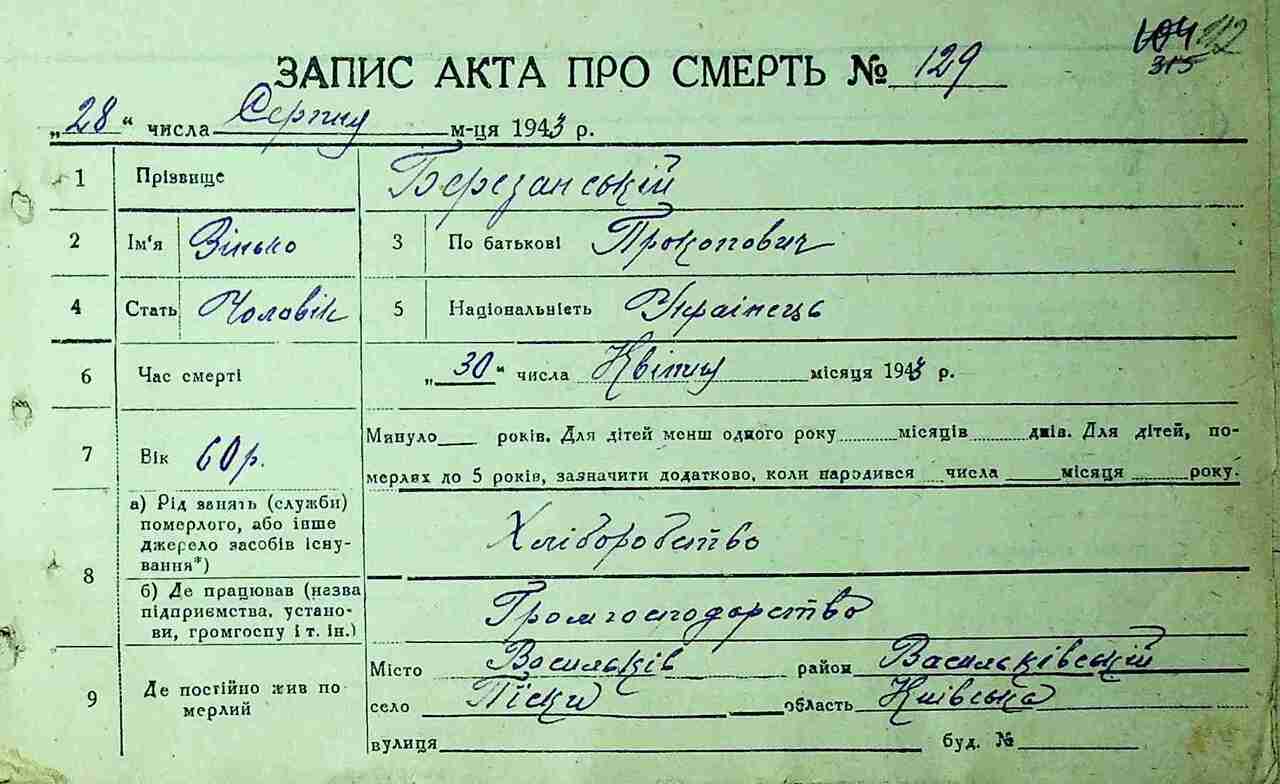 604 112
315
ЗАПИС АКТА ПРО СМЕРТЬ № 129
„28“ числа Серпня м-ця 1943 р.
1 Прізвище Березанський
2 Ім'я Зінько 3 По батькові Прокопович
4 Стать Чоловік 5 Національність Українець
6 Час смерті „30“ числа Квітня місяця 1943 р.
7 Вік 60 р. Минуло ___ років. Для дітей менш одного року ......... місяців ......... днів. Для дітей, по-
мерлих до 5 років, зазначити додатково, коли народився ... числа ______ місяця ______ року.
8 а) Рід занять (служби)
померлого, або інше
джерело засобів існу-
вання*) Хліборобство
б) Де працював (назва
підприємства, устано-
ви, громгоспу і т. ін.) Громгосподарство
9 Де постійно жив по
мерлий
Місто Васильків район Васильківській
село Піски область Київська
вулиця буд. №